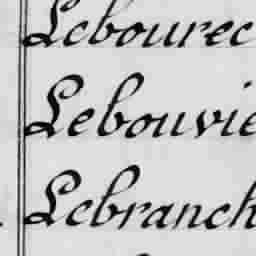 Lebourec
Lebouvie
Lebranch